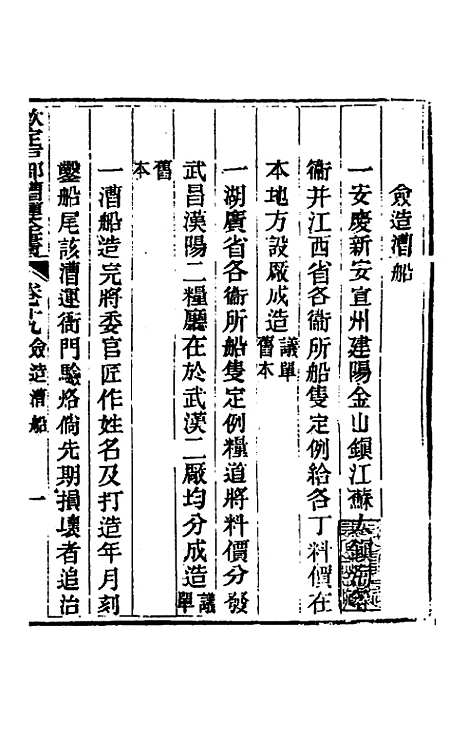 僉造漕船
一安慶新安宣州建陽金山鎮江蘇太鎮海
衞并江西省各衞所船隻定例給各丁料價在
本地方設厰成造議單舊本
一湖廣省各衞所船隻定例糧道將料價分發
武昌漢陽二糧廳在於武漢二厰均分成造議單
舊本
一漕船造完將委官匠作姓名及打造年月刻
鑿船尾該漕運衙門驗烙倘先期損壞者追治
欽定戶部漕運全書 卷十九 僉造漕船 一